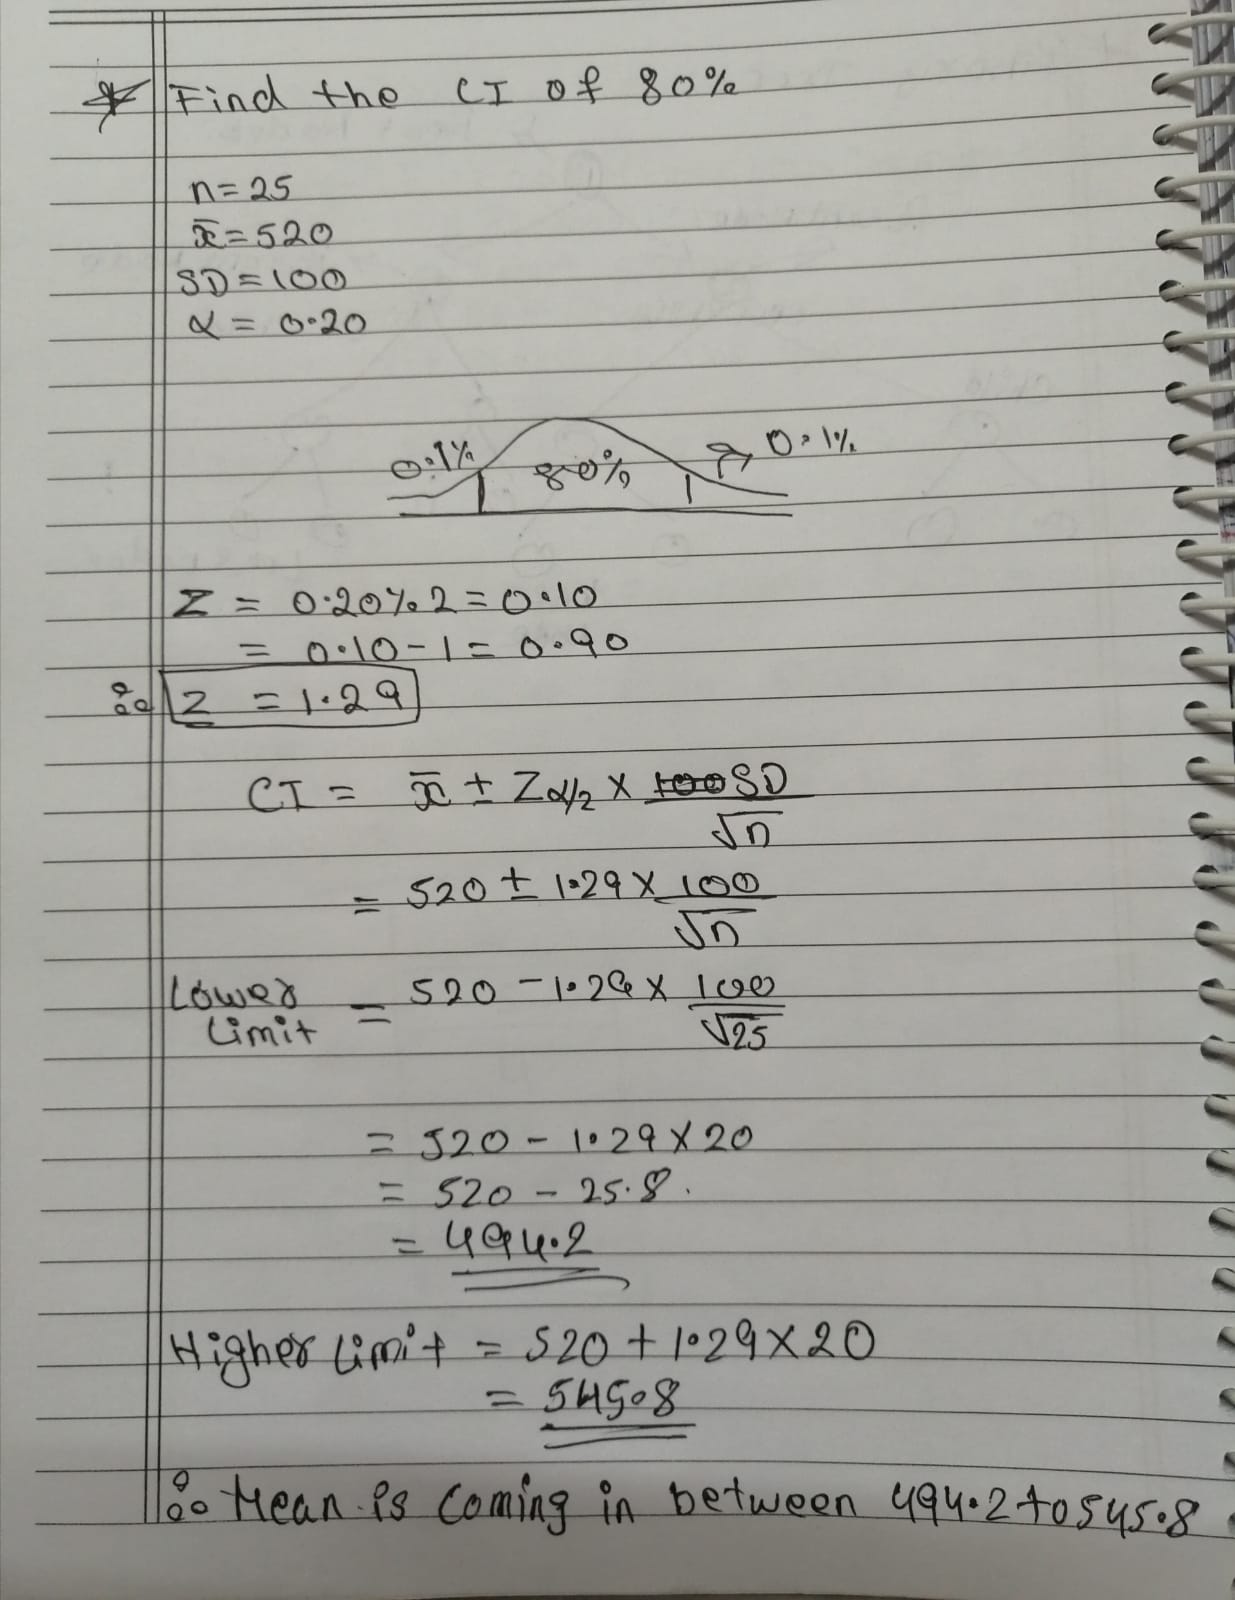 * Find the CI of 80%
n = 25
x̄ = 520
SD = 100
α = 0.20
0.1% 80% 0.1%
Z = 0.20 % 2 = 0.10
= 0.10 - 1 = 0.90
∴ Z = 1.29
CI = x̄ ± Zα/2 × SD
√n
= 520 ± 1.29 × 100
√n
Lower = 520 - 1.29 × 100
Limit √25
= 520 - 1.29 × 20
= 520 - 25.8.
= 494.2
Higher Limit = 520 + 1.29 × 20
= 545.8
∴ Mean is coming in between 494.2 to 545.8